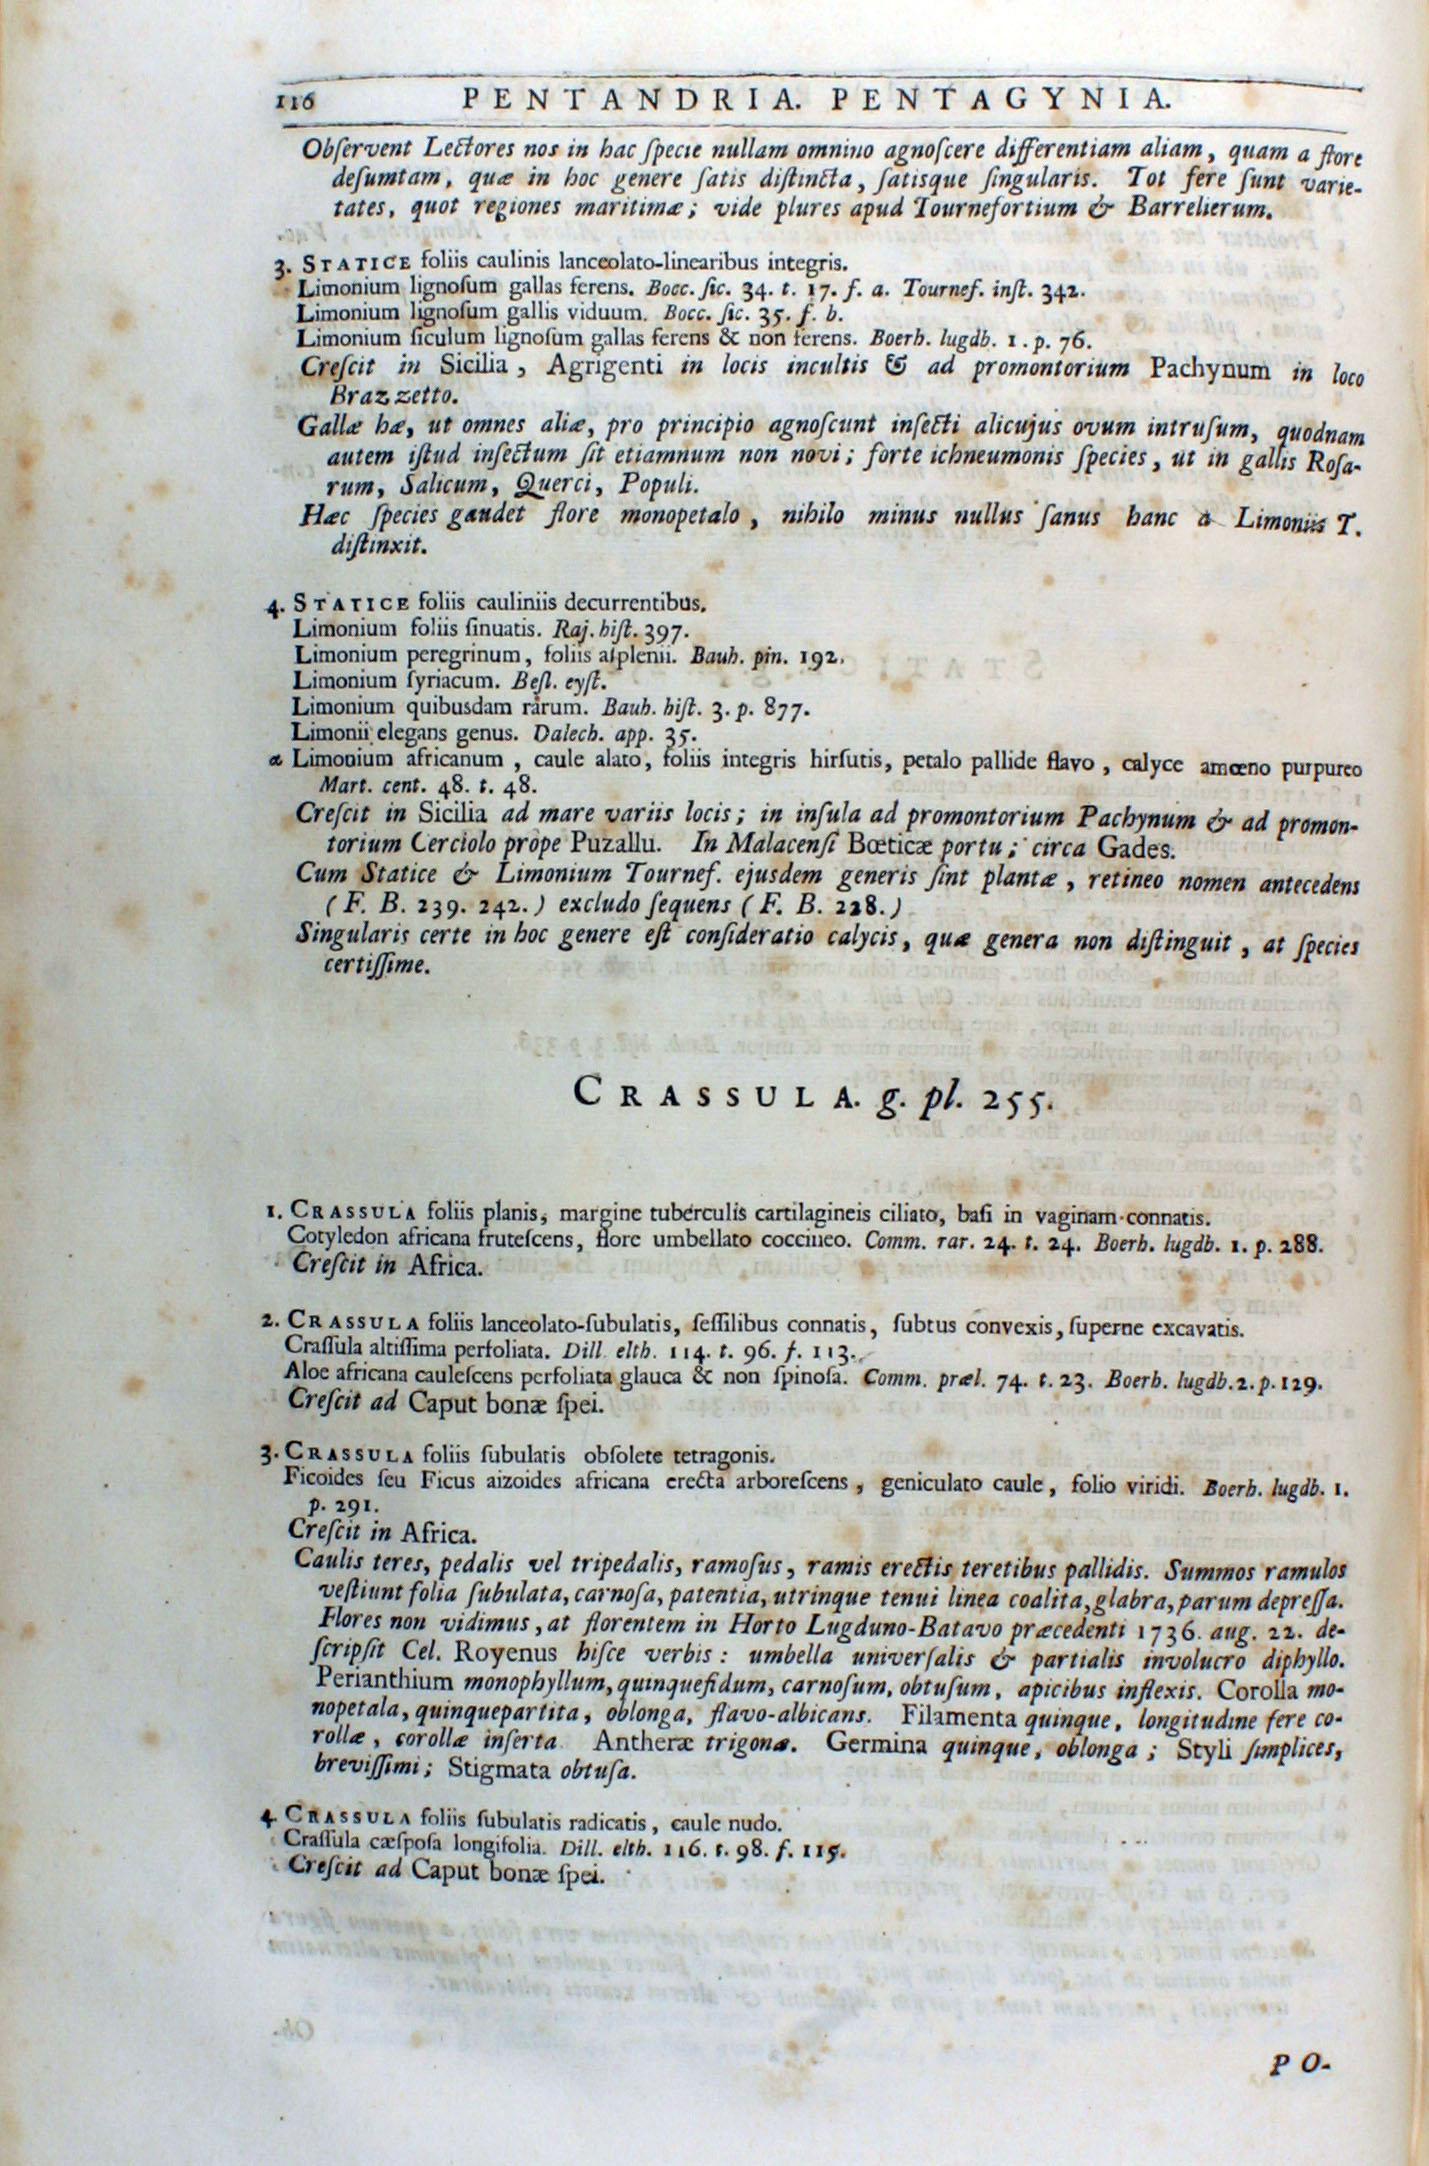 116 PENTANDRIA. PENTAGYNIA.
Obſervent Lectores nos in hac ſpecie nullam omnino agnoſcere differentiam aliam, quam a flore
deſumtam, quæ in hoc genere ſatis diſtincta, ſatisque ſingularis. Tot fere ſunt varie-
tates, quot regiones maritimæ; vide plures apud Tournefortium & Barrelierum.
3. STATICE foliis caulinis lanceolato-linearibus integris.
Limonium lignoſum gallas ferens. Bocc. ſic. 34. t. 17. f. a. Tournef. inſt. 342.
Limonium lignoſum gallis viduum. Bocc. ſic. 35. f. b.
Limonium ſiculum lignoſum gallas ferens & non ferens. Boerh. lugdb. 1. p. 76.
Creſcit in Sicilia, Agrigenti in locis incultis & ad promontorium Pachynum in loco
Brazzetto.
Gallæ hæ, ut omnes aliæ, pro principio agnoſcunt inſecti alicujus ovum intruſum, quodnam
autem iſtud inſectum ſit etiamnum non novi; forte ichneumonis ſpecies, ut in gallis Roſa-
rum, Salicum, Querci, Populi.
Hæc ſpecies gaudet flore monopetalo, nihilo minus nullus ſanus hanc a Limoniis T.
diſtinxit.
4. STATICE foliis cauliniis decurrentibus.
Limonium foliis ſinuatis. Raj. hiſt. 397.
Limonium peregrinum, foliis aſplenii. Bauh. pin. 192.
Limonium ſyriacum. Beſl. eyſt.
Limonium quibusdam rarum. Bauh. hiſt. 3. p. 877.
Limonii elegans genus. Dalech. app. 35.
α Limonium africanum, caule alato, foliis integris hirſutis, petalo pallide flavo, calyce amœno purpureo
Mart. cent. 48. t. 48.
Creſcit in Sicilia ad mare variis locis; in inſula ad promontorium Pachynum & ad promon-
torium Cerciolo prope Puzallu. In Malacenſi Bœticæ portu; circa Gades.
Cum Statice & Limonium Tournef. ejusdem generis ſint plantæ, retineo nomen antecedens
(F. B. 239. 242.) excludo ſequens (F. B. 228.)
Singularis certe in hoc genere eſt conſideratio calycis, quæ genera non diſtinguit, at ſpecies
certiſſime.
CRASSULA. g. pl. 255.
1. CRASSULA foliis planis, margine tuberculis cartilagineis ciliato, baſi in vaginam connatis.
Cotyledon africana fruteſcens, flore umbellato coccineo. Comm. rar. 24. t. 24. Boerh. lugdb. 1. p. 288.
Creſcit in Africa.
2. CRASSULA foliis lanceolato-ſubulatis, ſeſſilibus connatis, ſubtus convexis, ſuperne excavatis.
Craſſula altiſſima perfoliata. Dill. elth. 114. t. 96. f. 113.
Aloe africana cauleſcens perfoliata glauca & non ſpinoſa. Comm. præl. 74. t. 23. Boerh. lugdb. 2. p. 129.
Creſcit ad Caput bonæ ſpei.
3. CRASSULA foliis ſubulatis obſolete tetragonis.
Ficoides ſeu Ficus aizoides africana erecta arboreſcens, geniculato caule, folio viridi. Boerh. lugdb. 1.
p. 291.
Creſcit in Africa.
Caulis teres, pedalis vel tripedalis, ramoſus, ramis erectis teretibus pallidis. Summos ramulos
veſtiunt folia ſubulata, carnoſa, patentia, utrinque tenui linea coalita, glabra, parum depreſſa.
Flores non vidimus, at florentem in Horto Lugduno-Batavo præcedenti 1736. aug. 22. de-
ſcripſit Cel. Royenus hiſce verbis: umbella univerſalis & partialis involucro diphyllo.
Perianthium monophyllum, quinquefidum, carnoſum, obtuſum, apicibus inflexis. Corolla mo-
nopetala, quinquepartita, oblonga, flavo-albicans. Filamenta quinque, longitudine fere co-
rollæ, corollæ inſerta. Antheræ trigonæ. Germina quinque, oblonga; Styli ſimplices,
breviſſimi; Stigmata obtuſa.
4. CRASSULA foliis ſubulatis radicatis, caule nudo.
Craſſula cæſpoſa longifolia. Dill. elth. 116. t. 98. f. 115.
Creſcit ad Caput bonæ ſpei.
PO-